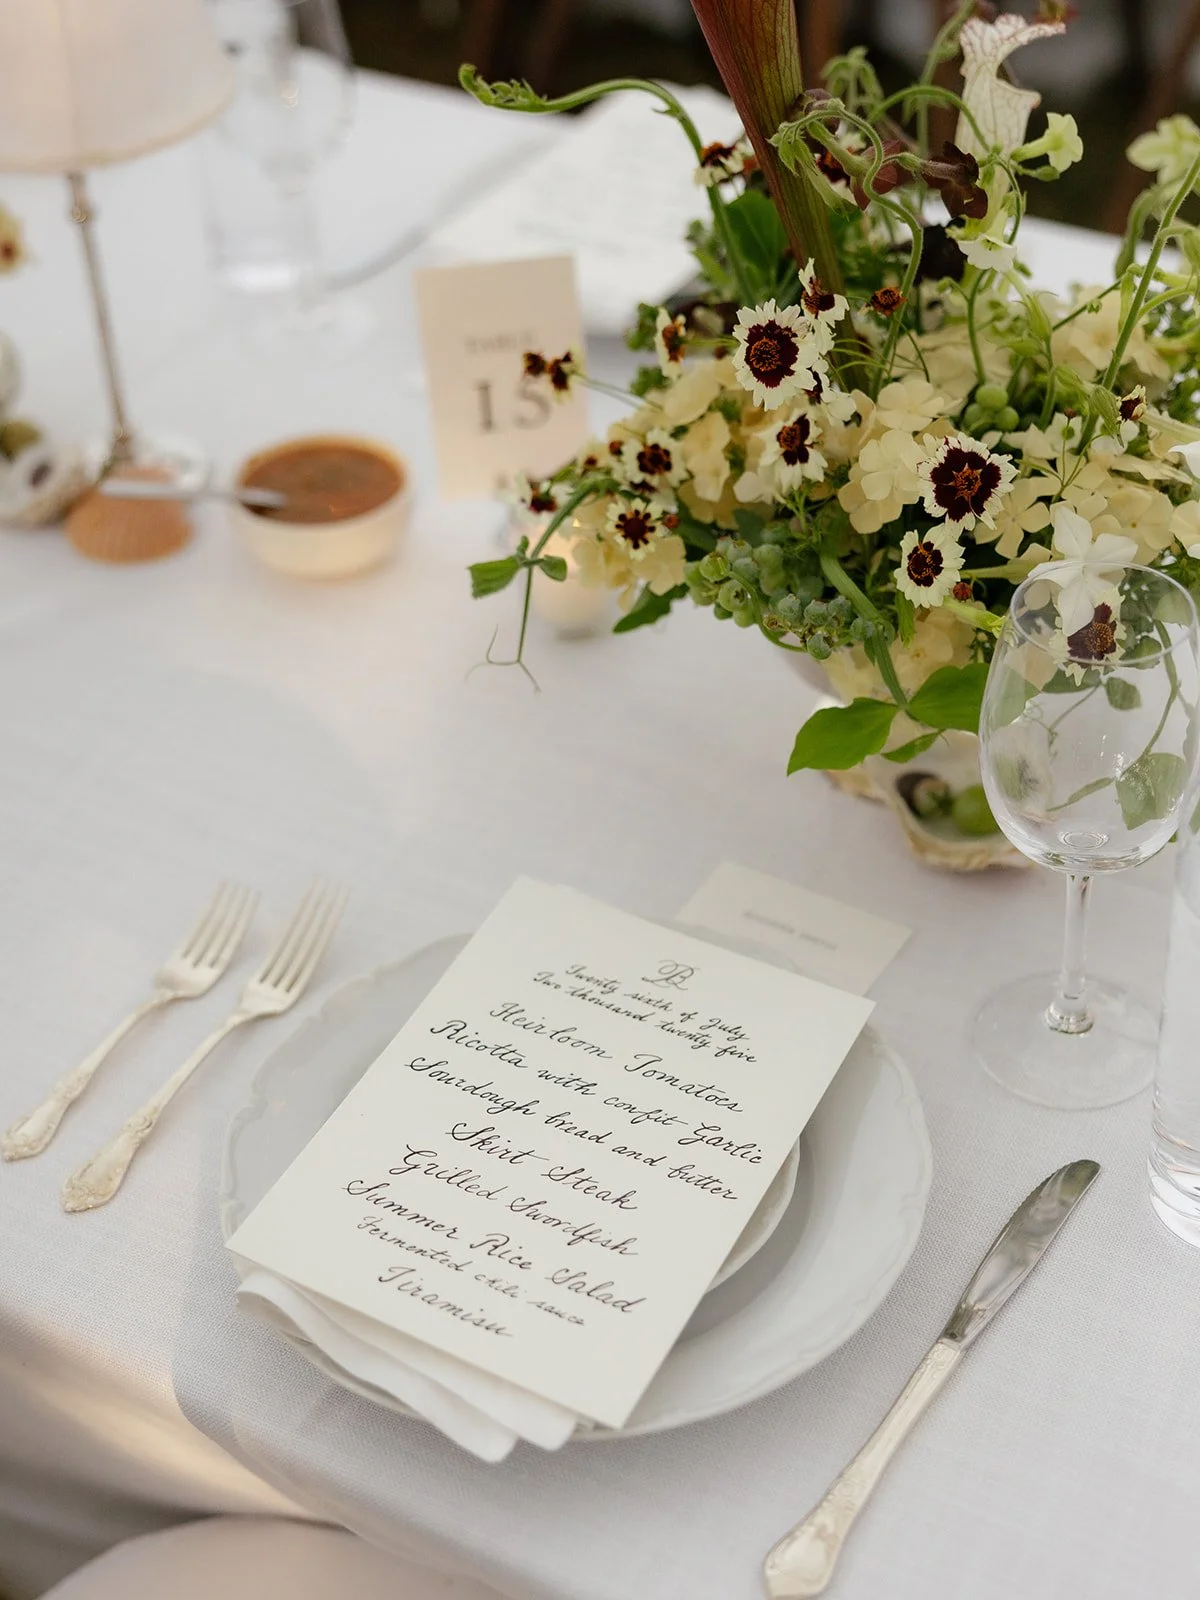 TABLE
15
B
Twenty sixth of July
Two thousand twenty five
Heirloom Tomatoes
Ricotta with confit Garlic
Sourdough bread and butter
Skirt Steak
Grilled Swordfish
Summer Rice Salad
Fermented chili sauce
Tiramisu